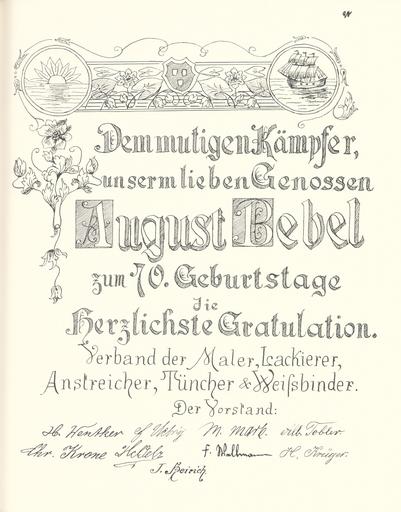 Dem mutigen Kämpfer,
unserm lieben Genossen
August Bebel
zum 70. Geburtstage
die
Herzlichste Gratulation.
Verband der Maler, Lackierer,
Anstreicher, Tüncher & Weißbinder.
Der Vorstand:
H. Wentker M. Mark. Tobler
Chr. Krone F. Mallmann H. Krüger.